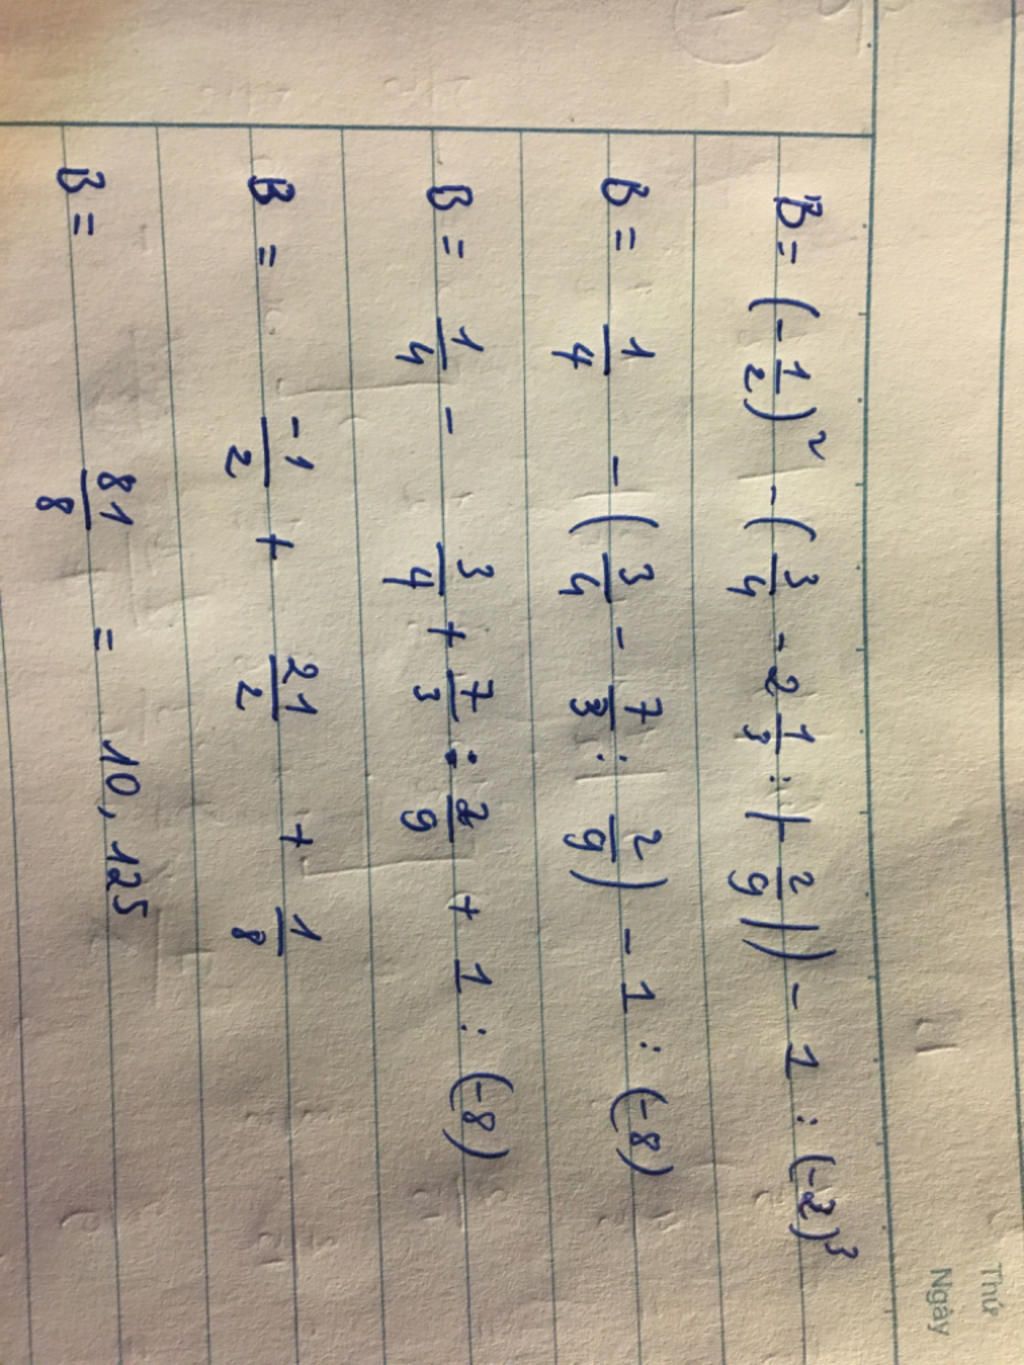 Thứ
Ngày
B = (-1/2)² - (3/4 - 2 1/3 : |-2/9|) - 1 : (-2)³
B = 1/4 - (3/4 - 7/3 : 2/9) - 1 : (-8)
B = 1/4 - 3/4 + 7/3 : 2/9 + 1 : (-8)
B = -1/2 + 21/2 + 1/8
B = 81/8 = 10,125